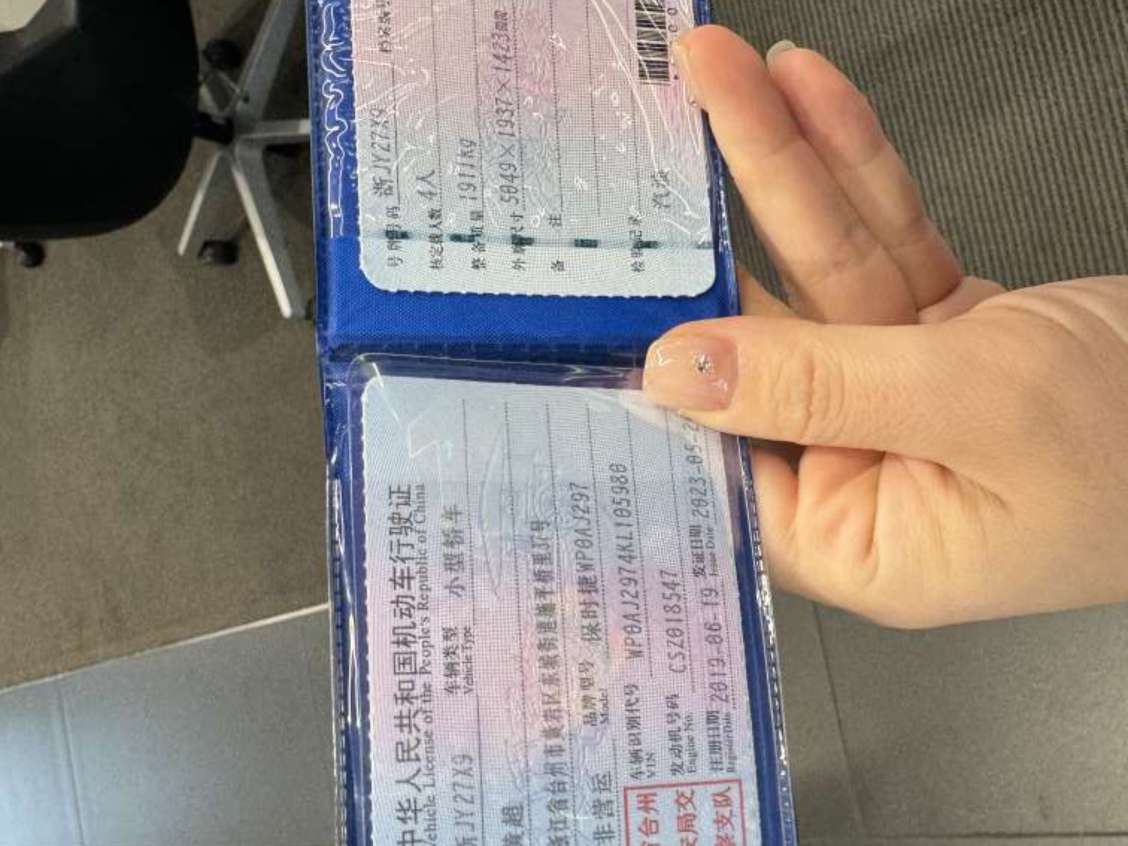 中华人民共和国机动车行驶证
Vehicle License of the People's Republic of China
浙JY27X9
车辆类型 小型轿车
Vehicle Type
浙江省台州市黄岩区东城街道
非营运
品牌型号 保时捷WP0AJ297
Model
车辆识别代号 WP0AJ2974KL105980
VIN
发动机号码 CSZ018547
Engine No.
注册日期 2019-06-19
Register Date
发证日期 2023-05-2
Issue Date
台州
局交
支队
号牌号码 浙JY27X9
核定载人数 4人
整备质量 1911kg
外廓尺寸 5049×1937×1423mm
备 注
检验记录
汽油